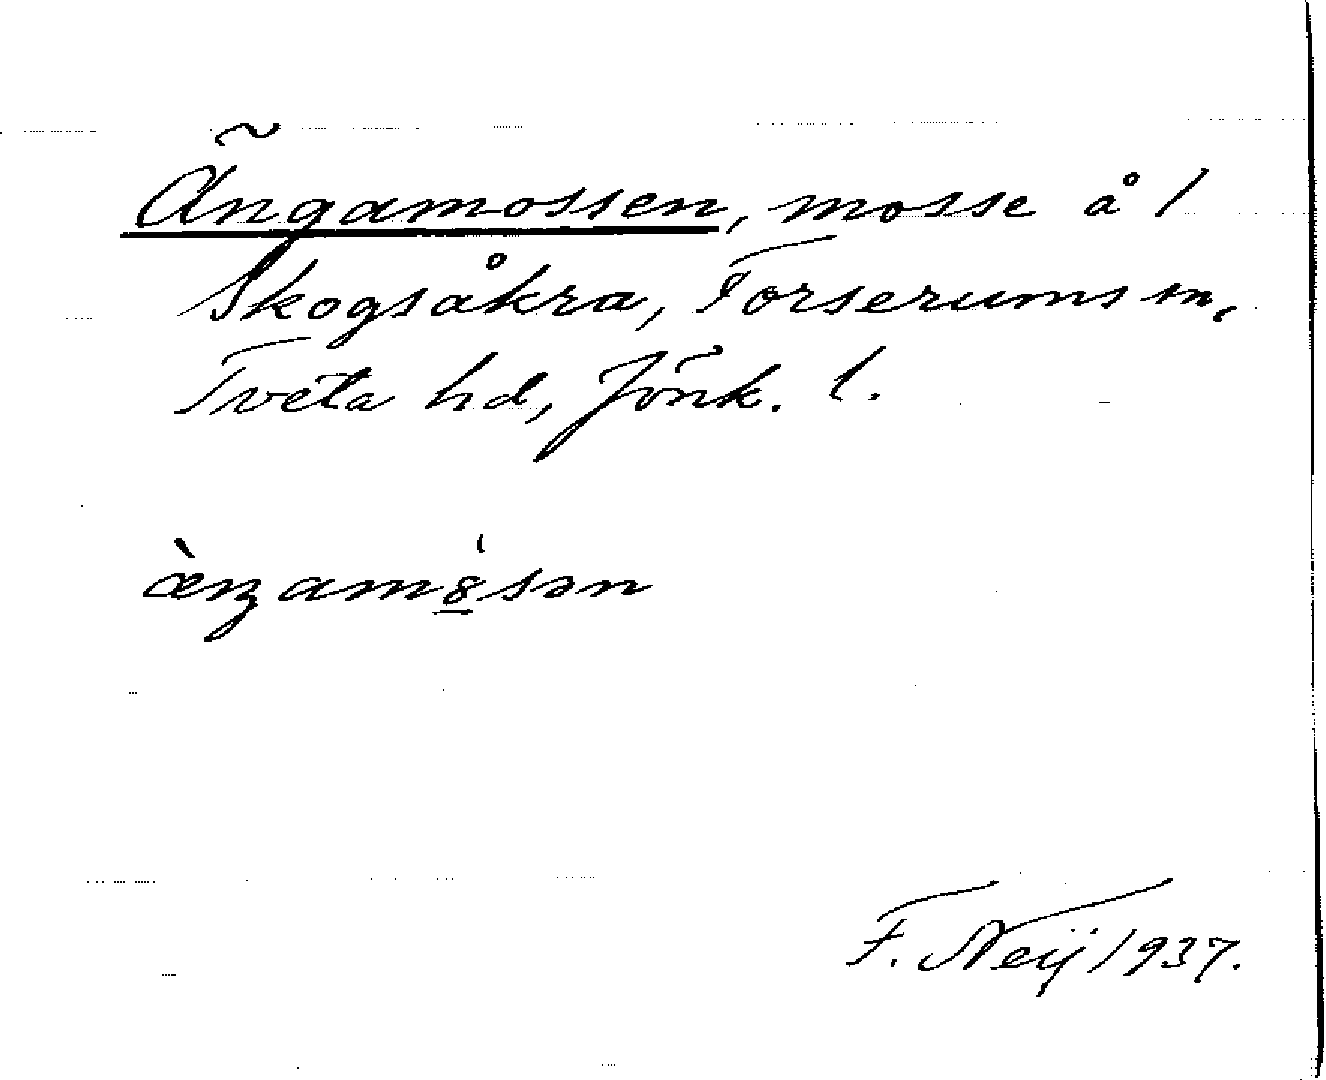 Ängamossen, mosse å 1
Skogsåkra, Forserums sn,
Tveta hd, Jönk. l.
F. Neij 1937.